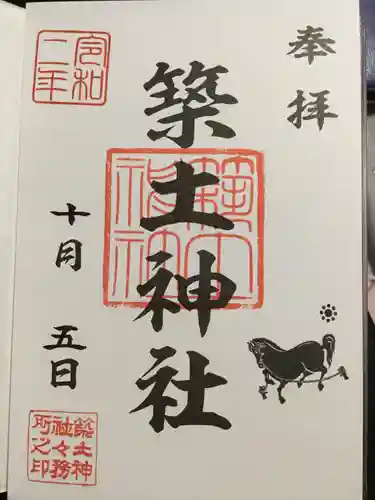 奉拝
築土神社
令和二年
十月五日
築土神社
築土神社々務所之印